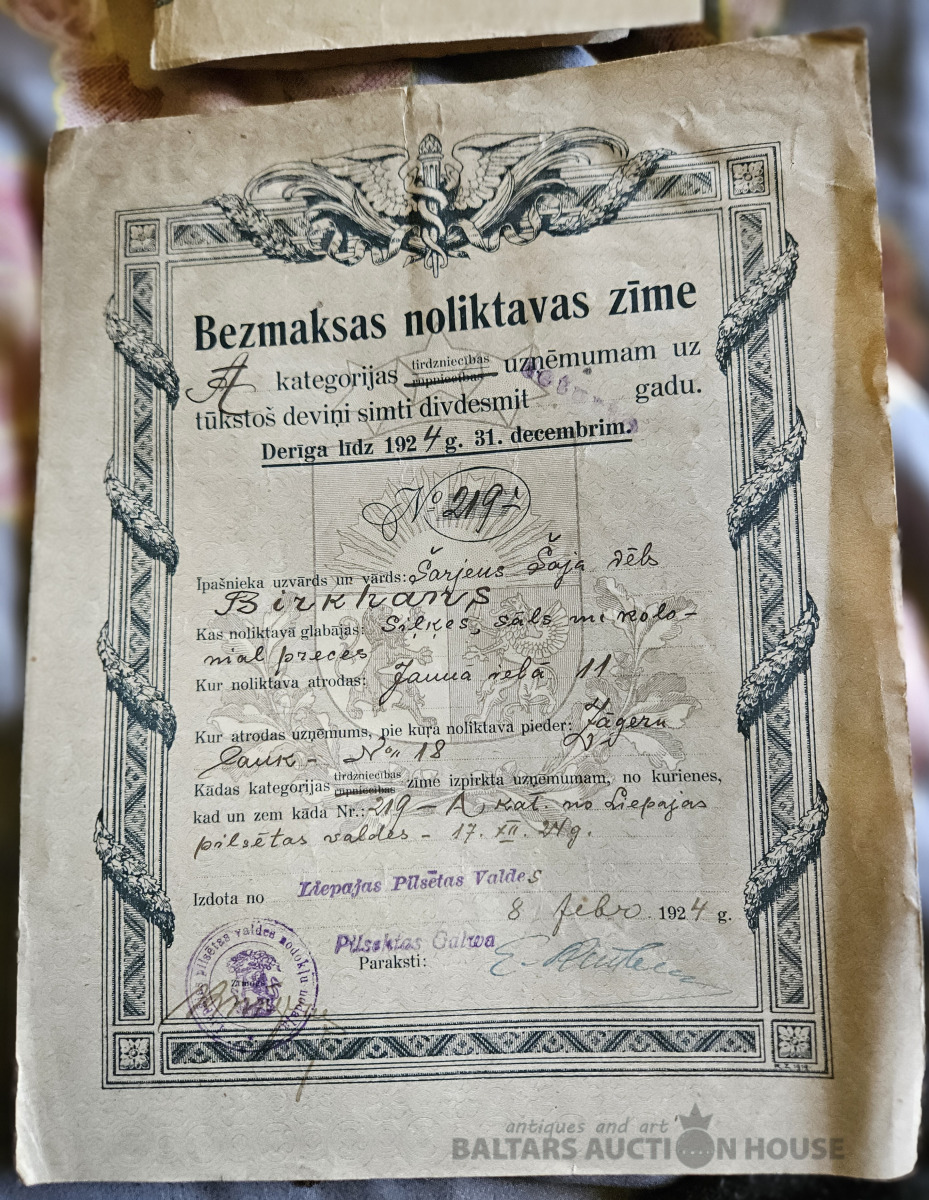 Bezmaksas noliktavas zīme
A kategorijas tirdzniecības rūpniecības uzņēmumam uz
tūkstoš deviņi simti divdesmit gadu.
Derīga līdz 1924 g. 31. decembrim.
№ 219
Īpašnieka uzvārds un vārds: Šarjens Šaja dēls
Birkhans
Kas noliktavā glabājas: Siļķes, sāls un kolo-
nial preces
Kur noliktava atrodas: Jauna ielā 11
Kur atrodas uzņēmums, pie kuŗa noliktava pieder: Jāgeru
lauk- № 18
Kādas kategorijas tirdzniecības rūpniecības zīme izpirkta uzņēmumam, no kurienes,
kad un zem kāda Nr.: 219 – A, kat. no Liepajas
pilsētas valdes – 17. XII. 24 g.
Izdota no Liepajas Pilsētas Valdes
8 febr. 1924 g.
Pilsehtas Galwa
Paraksti:
pilsētas valdes nodokļu nodaļa
antiques and art
BALTARS AUCTION HOUSE